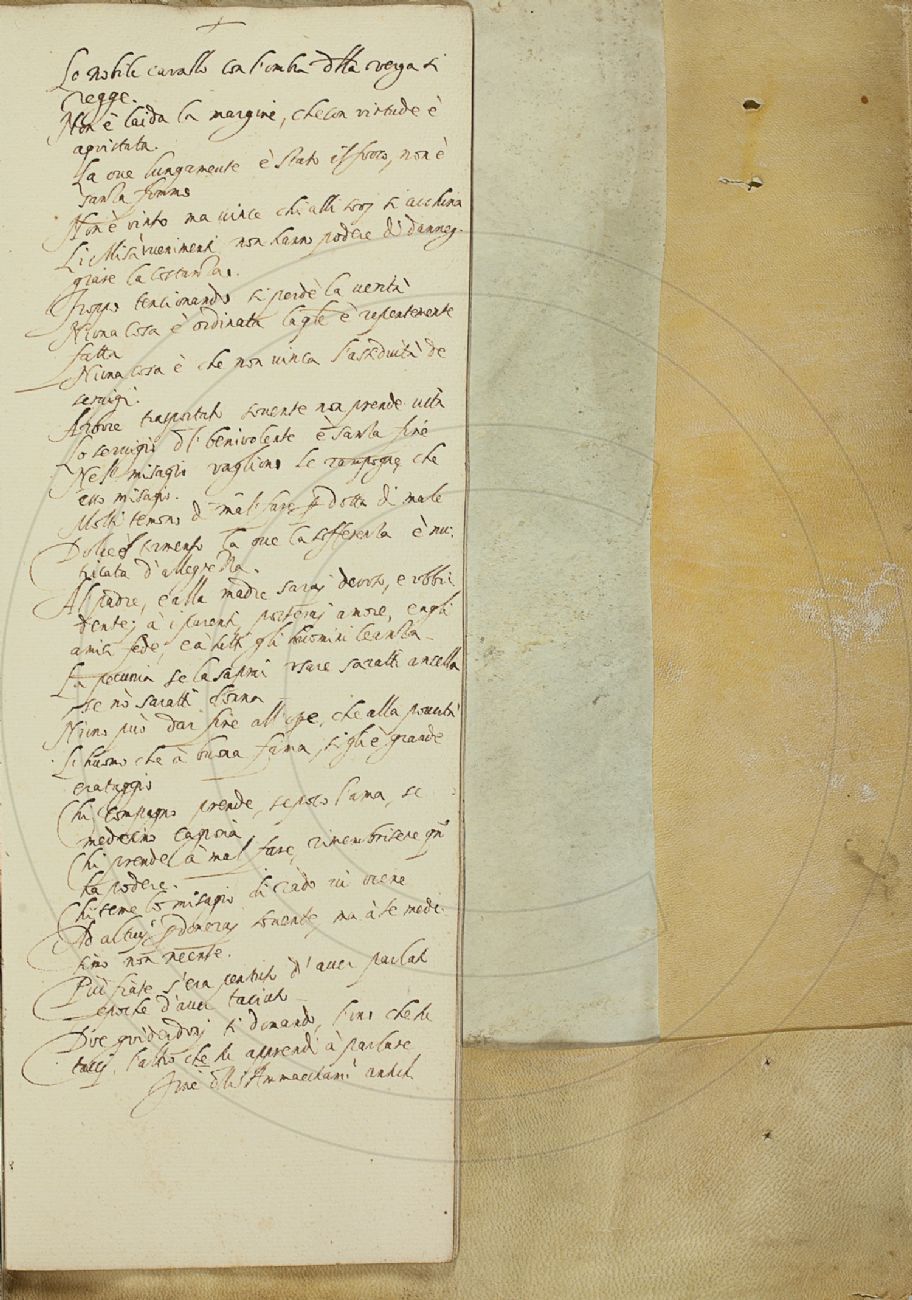 Lo nobile cavallo con l'ombra d͠lla verga si
regge.
Non è laida la margine, che con virtude è
aquistata.
La ove lungamente è stato il foco, non è
sanza fummo
Non è vinto ma vince chi alli sooj si inchina
Li Misavenimenti non hanno podere di danneg-
giare la costanza.
Troppo tencionando si perde la verità
Niuna cosa è ordinata la q͠le è repentemente
fatta
Niuna cosa è che non vinca l'assiduità de
servigi.
Arbore trasportato sovente non prende vita
Lo servigio d͠l benivolente è sanza fine
Nello misagio vagliono le rampogne che
esso misagio.
Molti temono di mal fare p dotta di male
Dolce è tormento la ove la sofferenza è nu-
tricata d'allegrezza.
Al padre, e alla madre saraj devoto, e obbi-
dente; à i parenti, porteraj amore, e agli
amici fede, e à tutti gli huomini leanza
La pecunia se la saprai usare saratti ancella
se nò saratti donna
Niuno può dar fine all'ope, che alla povertà
L'huomo che à buona fama, sigli è grande
eretaggio
Chi compagno prende, se poco l'ama, se
medesimo
Chi prende à mal fare, rimembrisene qn͠
ha podere.
Chi teme lo misagio di rado vi viene
Ad altruj p͠doneraj sovente, ma à te mede-
simo non neente.
Più fiate s'era pentuto d'aver parlato
e poche d'aver taciuto
Due guiderdonj ti domando, l'uno che tu
tacci, l'altro che tu apprendi à parlare
Fine d͠lli Ammaestram͠ti antichi